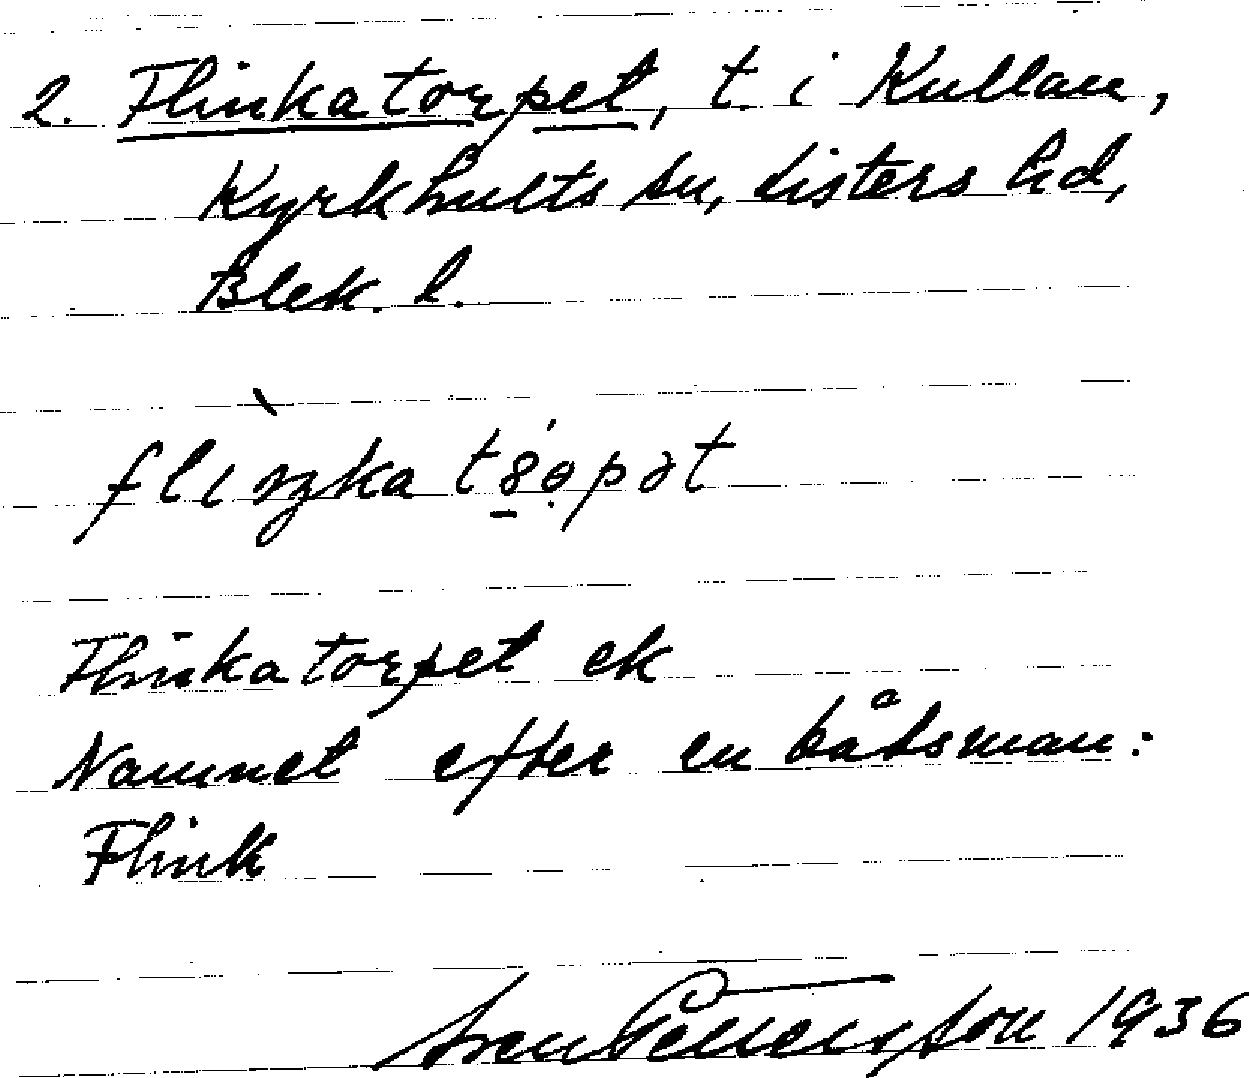 2. Flinkatorpet, t. i Kullan,
Kyrkhults sn, Listers hd,
Blek. l.
Flinkatorpet ek
Namnet efter en båtsman:
Flink
Sven Pettersson 1936